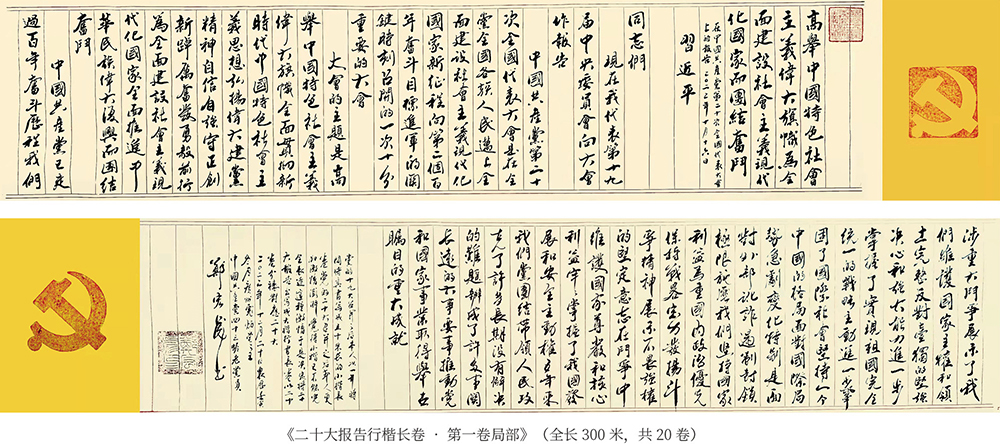 高舉中國特色社會
主義偉大旗幟為全
面建設社會主義現代
化國家而團結奮鬥
在中國共產黨第二十次全國代表大會
上的報告 二〇二二年十月十六日
習近平
同志們
現在我代表第十九
屆中央委員會向大會
作報告
中國共產黨第二十
次全國代表大會是在全
黨全國各族人民邁上全
面建設社會主義現代化
國家新征程向第二個百
年奮斗目標進軍的關
鍵時刻召開的一次十分
重要的大會
大會的主題是高
舉中國特色社會主義
偉大旗幟全面貫徹新
時代中國特色社會主
義思想弘揚偉大建黨
精神自信自強守正創
新踔厲奮發勇毅前行
為全面建設社會主義現
代化國家全面推進中
華民族偉大復興而團結
奮鬥
中國共產黨已走
過百年奮斗歷程我們
涉重大鬥爭展示了我
們維護國家主權和領
土完整反對台獨的堅強
決心和強大能力進一步
掌握了實現祖國完全
統一的戰略主動進一步鞏
固了國際社會堅持一个
中國的格局面對國際局
勢急劇變化特別是面
對外部訛詐遏制封鎖
極限施壓我們堅持國家
利益為重國內政治優先
保持戰略定力發揚斗
爭精神展示不畏強權
的堅定意志在鬥爭中
維護國家尊嚴和核心
利益牢牢掌握了我國發
展和安全主動權五年來
我們黨團結帶領人民攻
克了許多長期沒有解決
的難題辦成了許多事關
長遠的大事要事推動黨
和國家事業取得舉世
矚目的重大成就
《二十大报告行楷长卷 · 第一卷局部》（全长 300 米，共 20 卷）